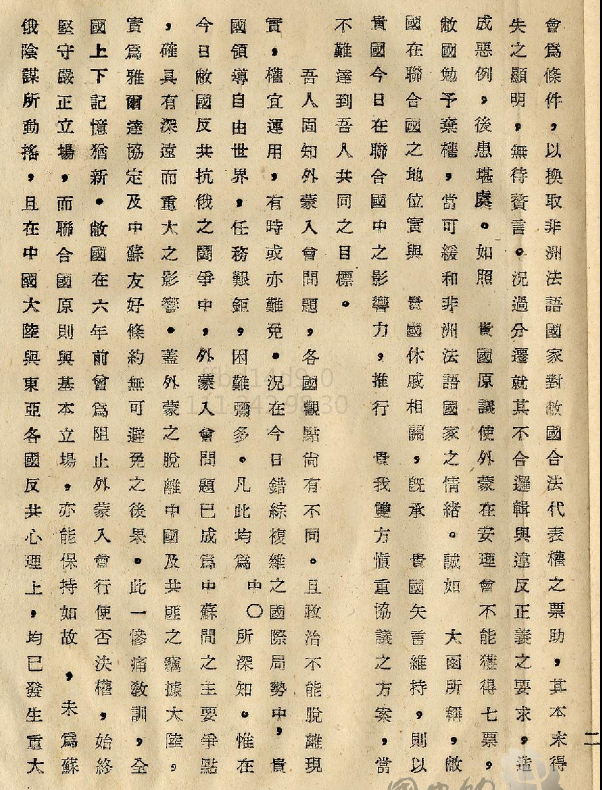 二
會爲條件，以換取非洲法語國家對敝國合法代表權之票助，其本末得
失之顯明，無待贅言。況過分遷就其不合邏輯與違反正義之要求，造
成惡例，後患堪虞。如照　貴國原議使外蒙在安理會不能獲得七票，
敝國勉予棄權，當可緩和非洲法語國家之情緒。誠如　大函所稱，敝
國在聯合國之地位實與　貴國休戚相關，旣承　貴國矢言維持，則以
貴國今日在聯合國中之影響力，推行　貴我雙方愼重協議之方案，當
不難達到吾人共同之目標。
吾人固知外蒙入會問題，各國觀點尙有不同。且政治不能脫離現
實，權宜運用，有時或亦難免。況在今日錯綜複雜之國際局勢中，貴
國領導自由世界，任務艱鉅，困難彌多。凡此均爲中〇所深知。惟在
今日敝國反共抗俄之鬪爭中，外蒙入會問題已成爲中蘇間之主要爭點
，確具有深遠而重大之影響。蓋外蒙之脫離中國及共匪之竊據大陸，
實爲雅爾達協定及中蘇友好條約無可避免之後果。此一慘痛敎訓，全
國上下記憶猶新。敝國在六年前曾爲阻止外蒙入會行使否決權，始終
堅守嚴正立場，而聯合國原則與基本立場，亦能保持如故，未爲蘇
俄陰謀所動搖，且在中國大陸與東亞各國反共心理上，均已發生重大